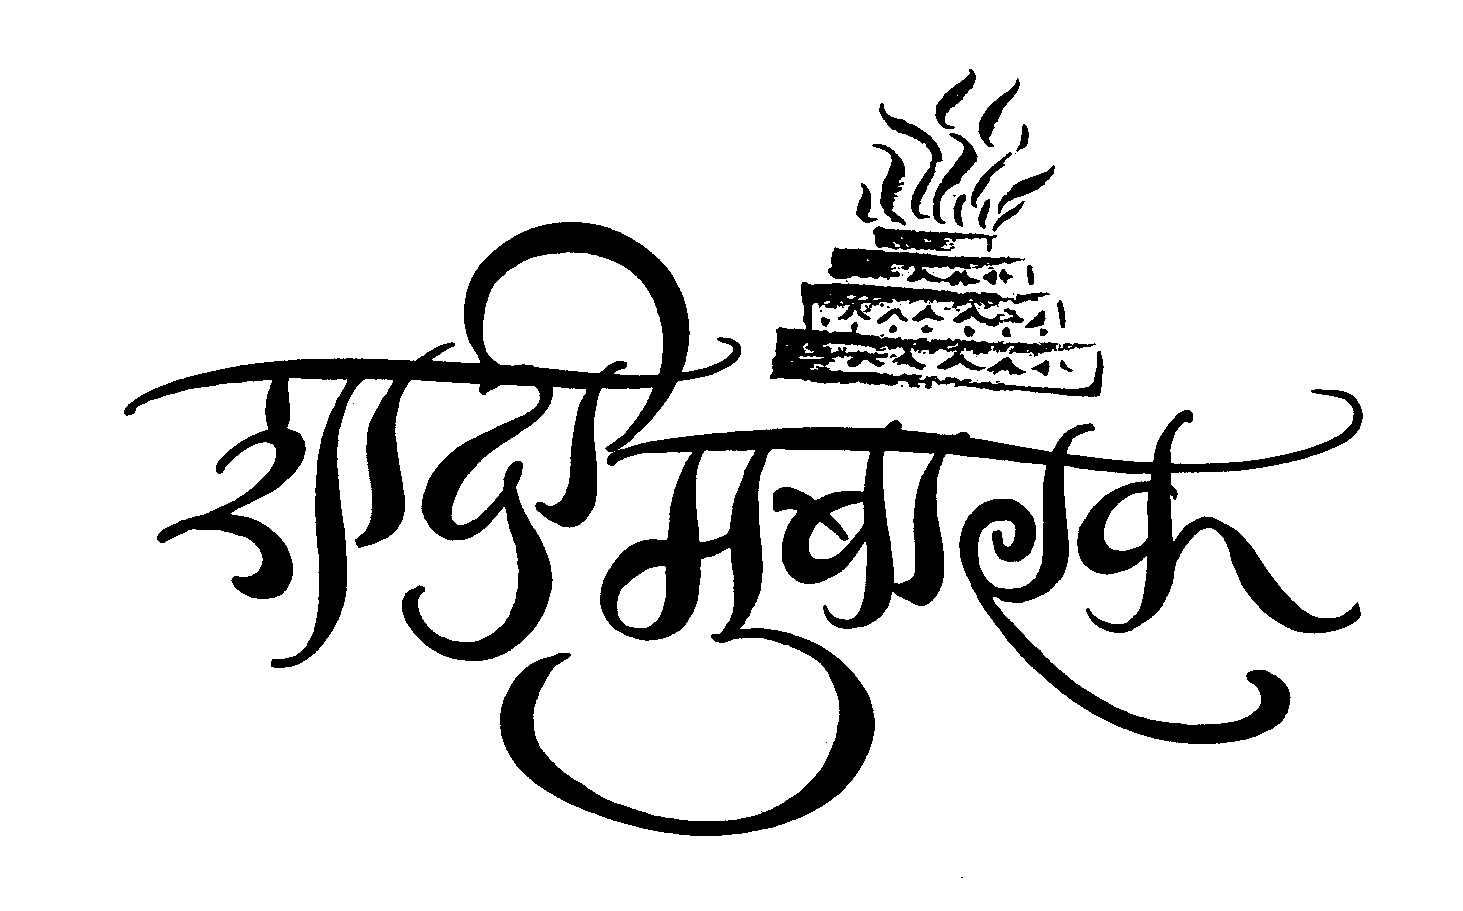 शादी मुबारक